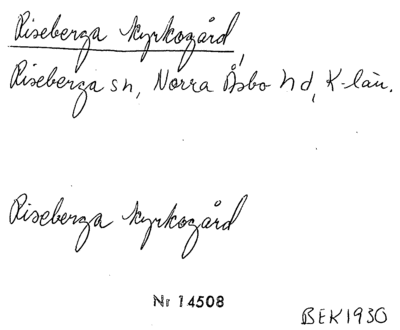 Riseberga kyrkogård,
Riseberga sn, Norra Åsbo hd, K-län.
Riseberga kyrkogård
Nr 14508
BEK1930